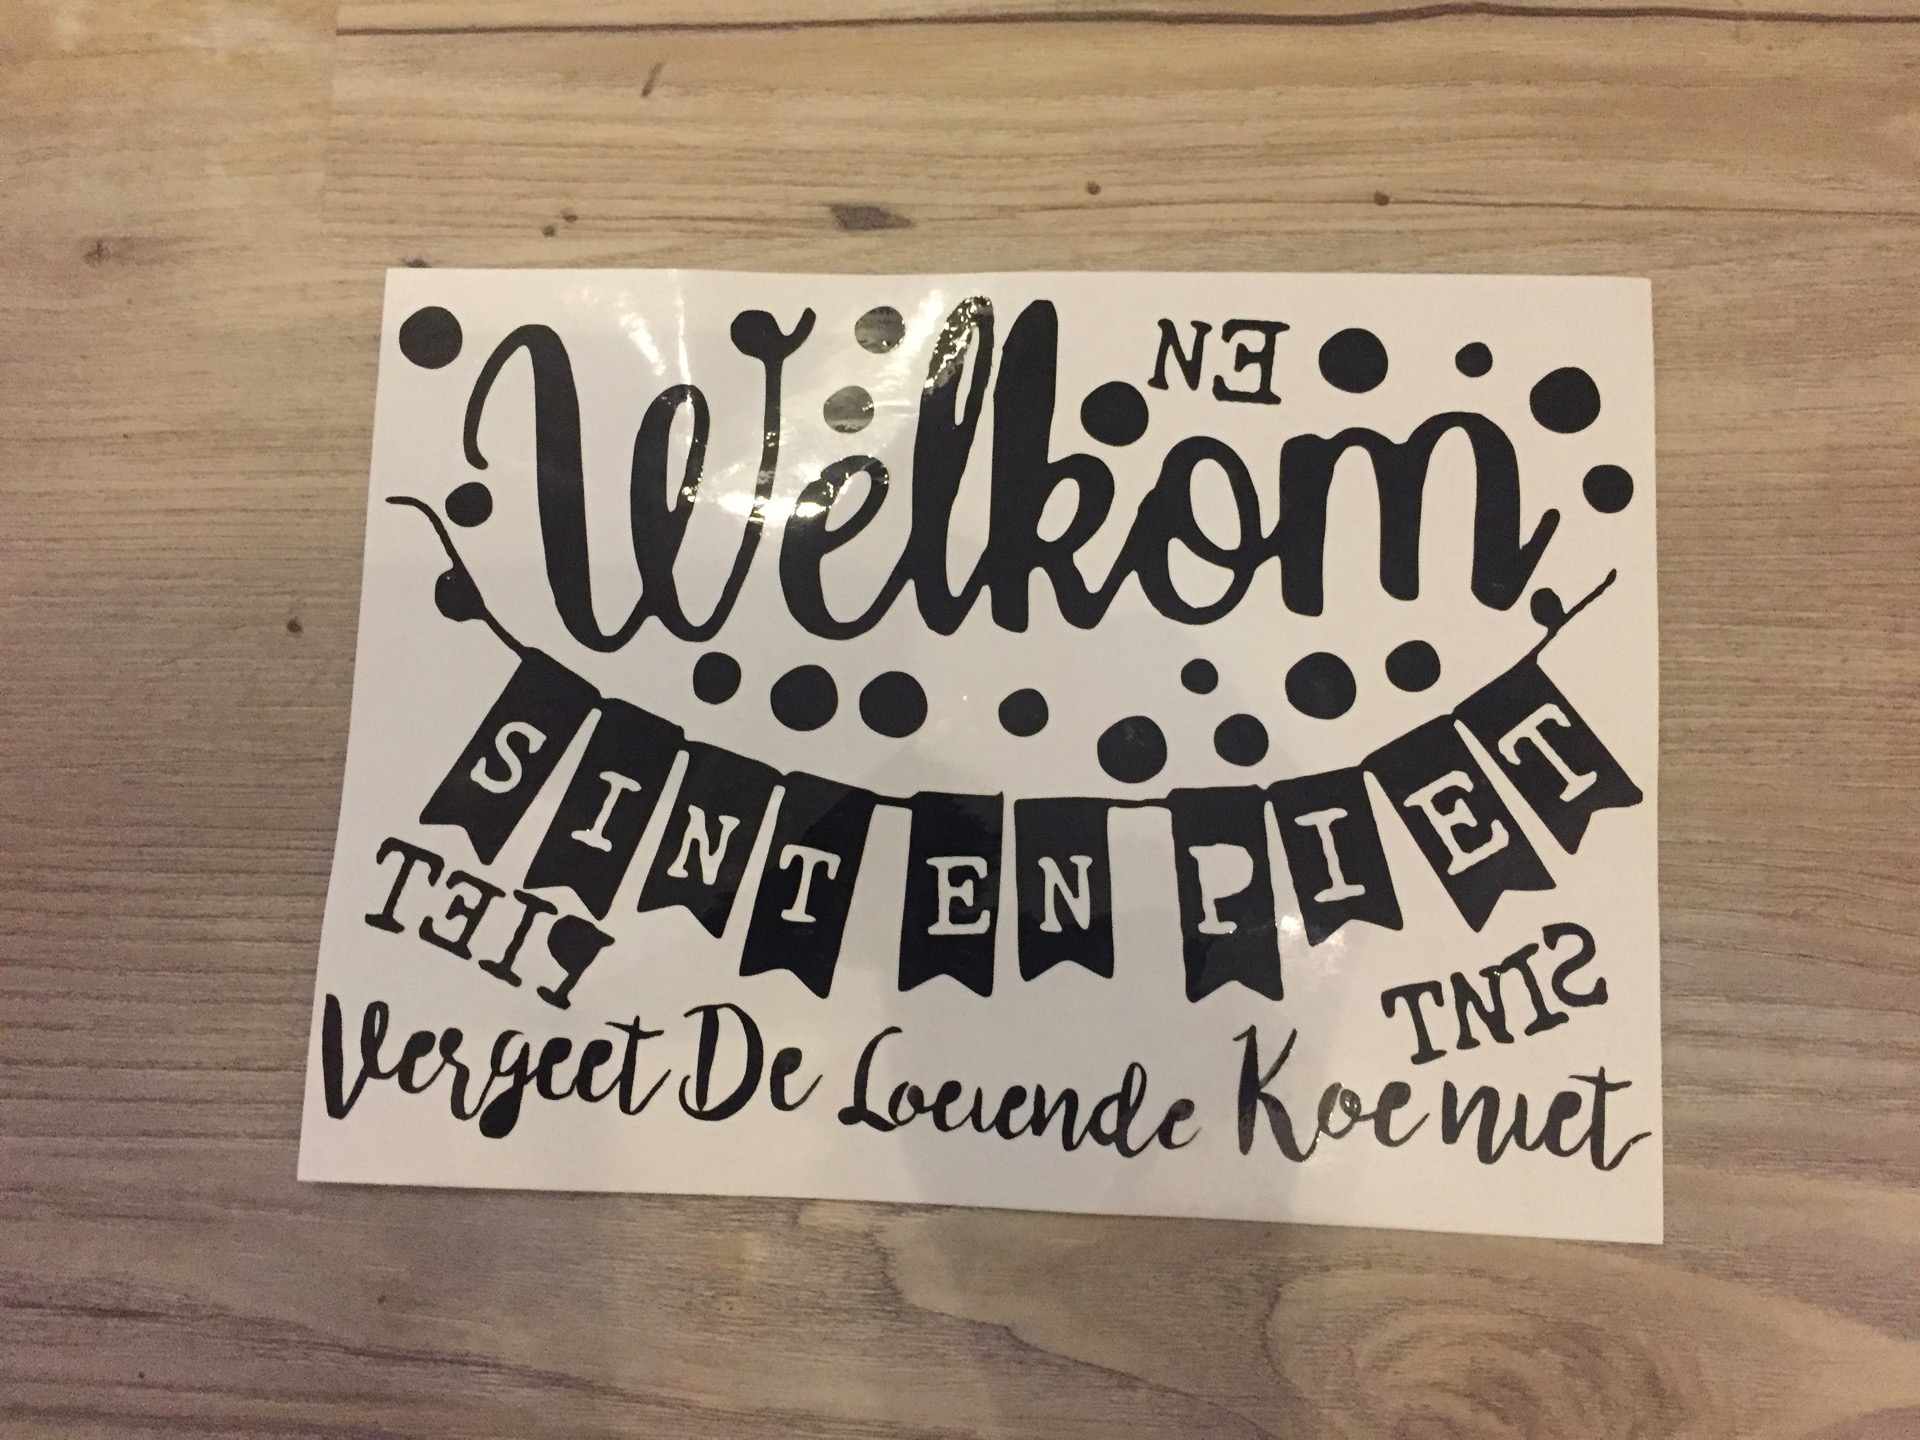 Welkom
EN
SINT EN PIET
PIET
SINT
Vergeet De Loeiende Koe niet